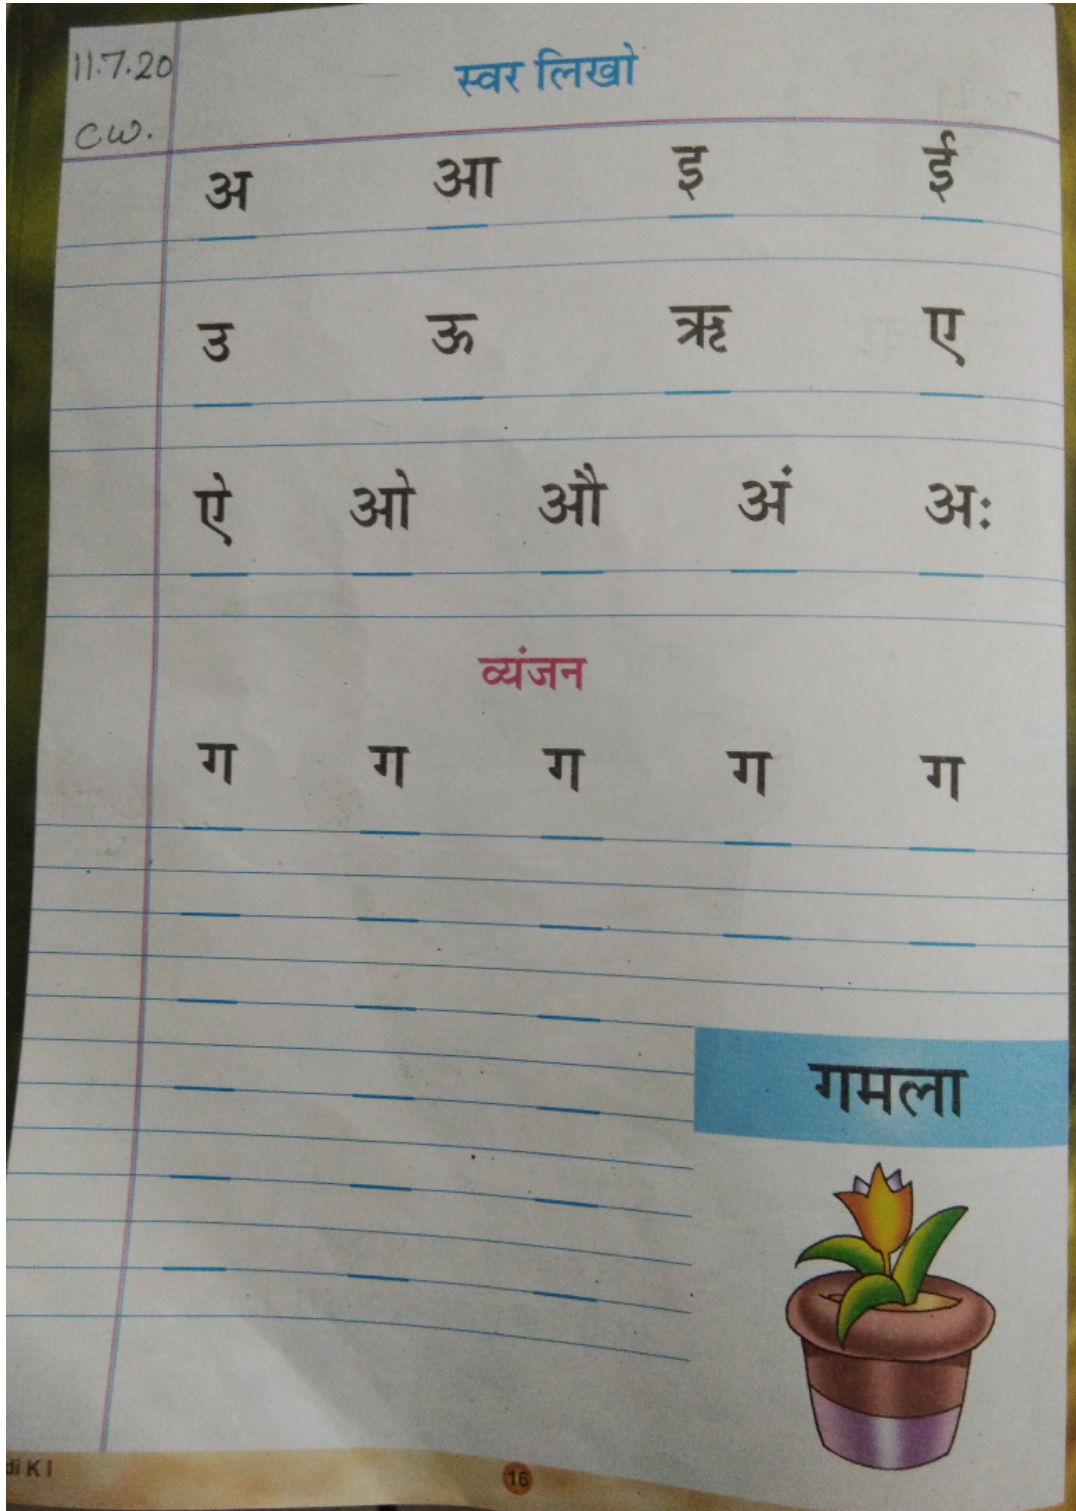 11.7.20
स्वर लिखो
C.W.
अ आ इ ई
उ ऊ ऋ ए
ऐ ओ औ अं अः
व्यंजन
ग ग ग ग ग
गमला
di K I
16